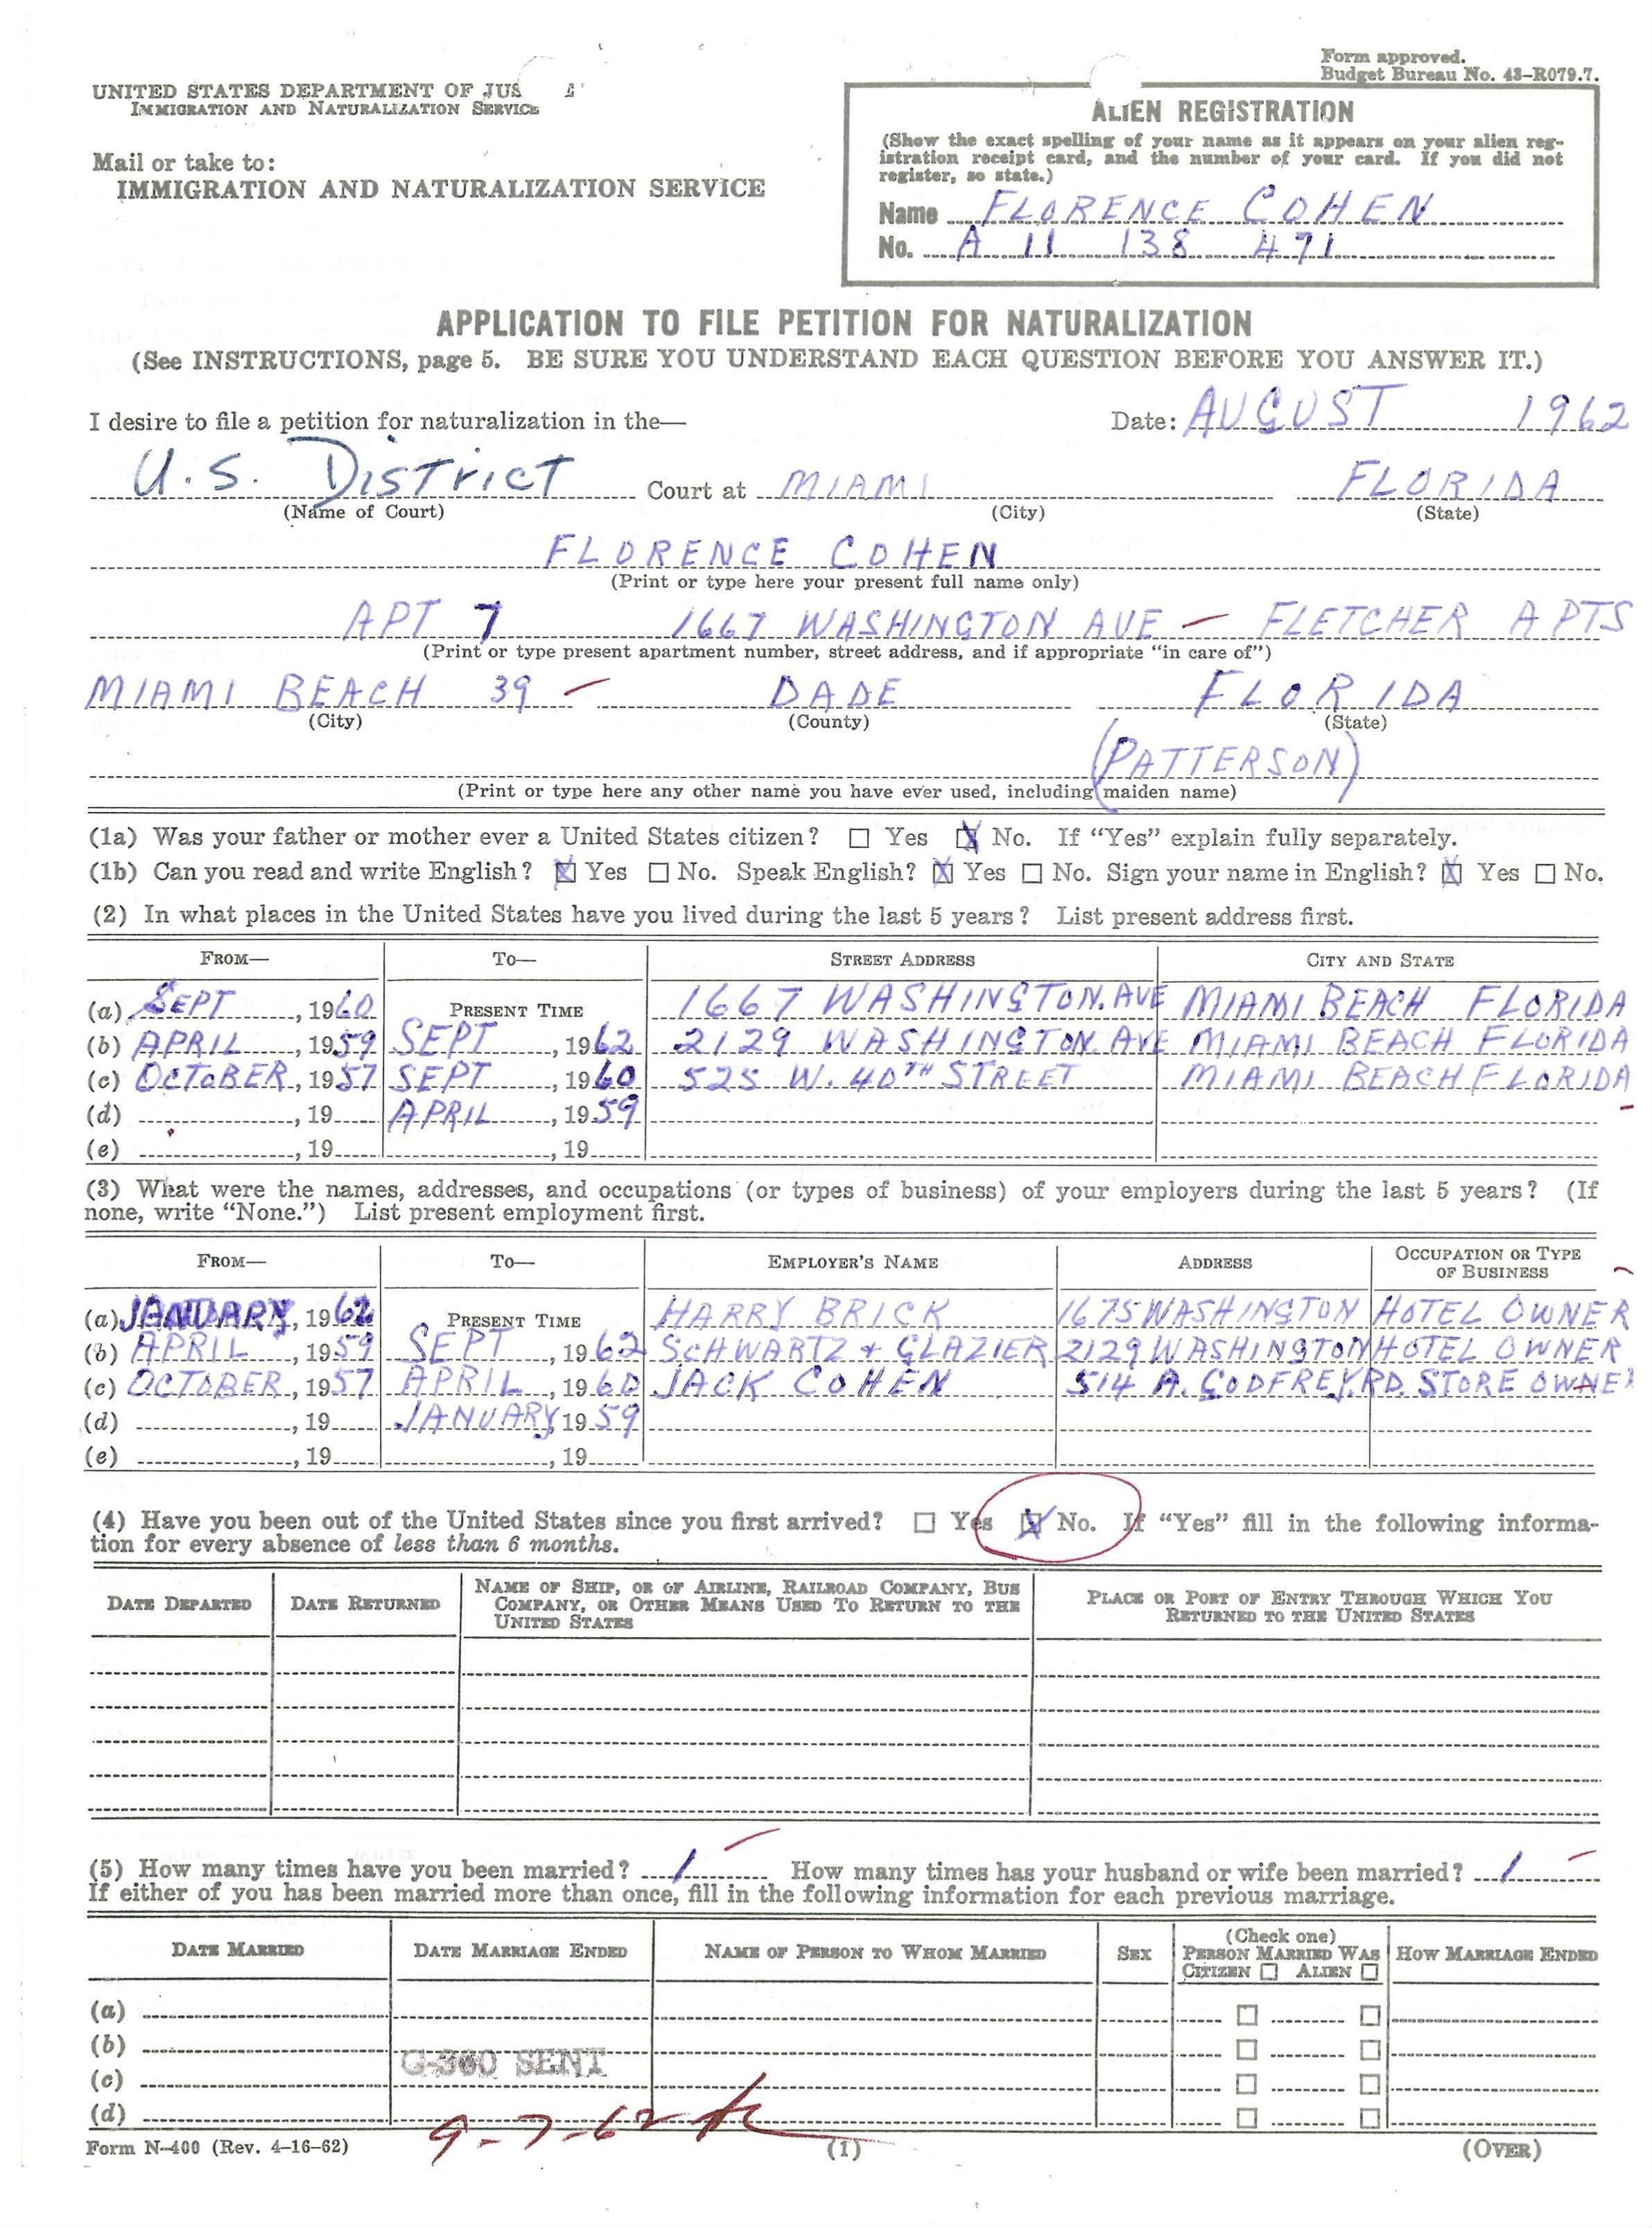 Form approved.
Budget Bureau No. 43-R079.7.
UNITED STATES DEPARTMENT OF JUS
IMMIGRATION AND NATURALIZATION SERVICE
Mail or take to:
IMMIGRATION AND NATURALIZATION SERVICE
ALIEN REGISTRATION
(Show the exact spelling of your name as it appears on your alien reg-
istration receipt card, and the number of your card. If you did not
register, so state.)
Name FLORENCE COHEN
No. A 11 138 471
APPLICATION TO FILE PETITION FOR NATURALIZATION
(See INSTRUCTIONS, page 5. BE SURE YOU UNDERSTAND EACH QUESTION BEFORE YOU ANSWER IT.)
I desire to file a petition for naturalization in the— Date: AUGUST 1962
U.S. DISTRICT Court at MIAMI FLORIDA
(Name of Court) (City) (State)
FLORENCE COHEN
(Print or type here your present full name only)
APT 7 1667 WASHINGTON AVE — FLETCHER APTS
(Print or type present apartment number, street address, and if appropriate "in care of")
MIAMI BEACH 39 — DADE FLORIDA
(City) (County) (State)
(PATTERSON)
(Print or type here any other name you have ever used, including maiden name)
(1a) Was your father or mother ever a United States citizen? ☐ Yes ☒ No. If "Yes" explain fully separately.
(1b) Can you read and write English? ☒ Yes ☐ No. Speak English? ☒ Yes ☐ No. Sign your name in English? ☒ Yes ☐ No.
(2) In what places in the United States have you lived during the last 5 years? List present address first.
FROM— TO— STREET ADDRESS CITY AND STATE
(a) SEPT, 1960 PRESENT TIME 1667 WASHINGTON. AVE MIAMI BEACH FLORIDA
(b) APRIL, 1959 SEPT, 1962 2129 WASHINGTON. AVE MIAMI BEACH FLORIDA
(c) OCTOBER, 1957 SEPT, 1960 525 W. 40TH STREET MIAMI BEACH FLORIDA
(d) , 19 APRIL, 1959
(e) , 19 , 19
(3) What were the names, addresses, and occupations (or types of business) of your employers during the last 5 years? (If
none, write "None.") List present employment first.
FROM— TO— EMPLOYER'S NAME ADDRESS OCCUPATION OR TYPE OF BUSINESS
(a) JANUARY, 1962 PRESENT TIME HARRY BRICK 1675 WASHINGTON HOTEL OWNER
(b) APRIL, 1959 SEPT, 1962 SCHWARTZ + GLAZIER 2129 WASHINGTON HOTEL OWNER
(c) OCTOBER, 1957 APRIL, 1960 JACK COHEN 514 A. GODFREY.RD. STORE OWNER
(d) , 19 JANUARY, 1959
(e) , 19 , 19
(4) Have you been out of the United States since you first arrived? ☐ Yes ☒ No. If "Yes" fill in the following informa-
tion for every absence of less than 6 months.
DATE DEPARTED DATE RETURNED NAME OF SHIP, OR OF AIRLINE, RAILROAD COMPANY, BUS COMPANY, OR OTHER MEANS USED TO RETURN TO THE UNITED STATES PLACE OR PORT OF ENTRY THROUGH WHICH YOU RETURNED TO THE UNITED STATES
(5) How many times have you been married? 1 How many times has your husband or wife been married? 1
If either of you has been married more than once, fill in the following information for each previous marriage.
DATE MARRIED DATE MARRIAGE ENDED NAME OF PERSON TO WHOM MARRIED SEX (Check one) PERSON MARRIED WAS CITIZEN ☐ ALIEN ☐ HOW MARRIAGE ENDED
(a) ☐ ☐
(b) ☐ ☐
G-360 SENT
(c) ☐ ☐
(d) ☐ ☐
9-7-62
Form N-400 (Rev. 4-16-62) (1) (OVER)